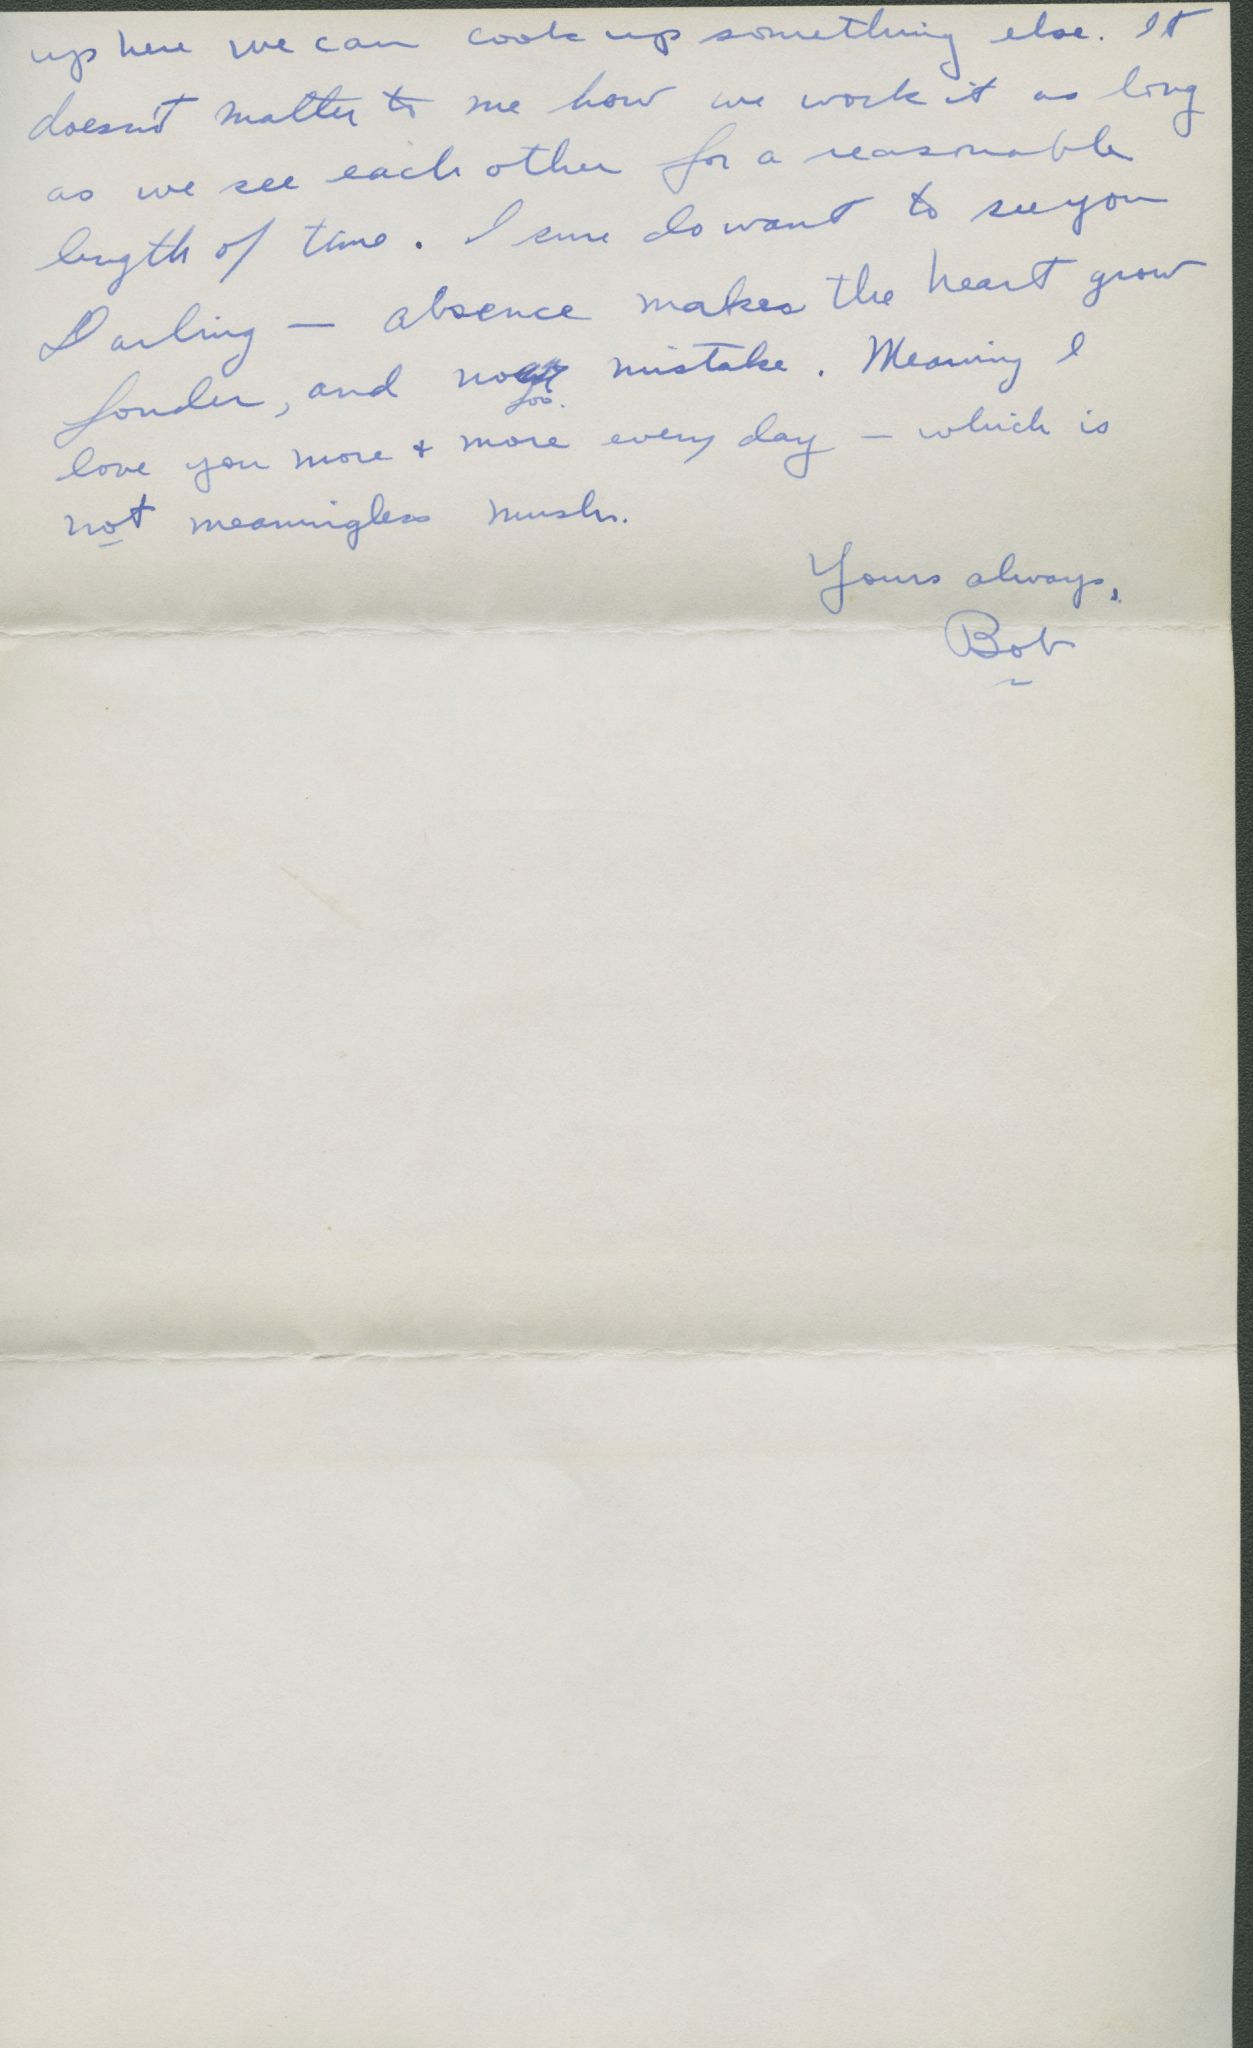 up here we can cook up something else. It
doesn't matter to me how we work it as long
as we see each other for a reasonable
length of time. I sure do want to see you
Darling — absence makes the heart grow
fonder, and no mistake. Meaning I
love you more & more every day — which is
not meaningless mush.
Yours always,
Bob